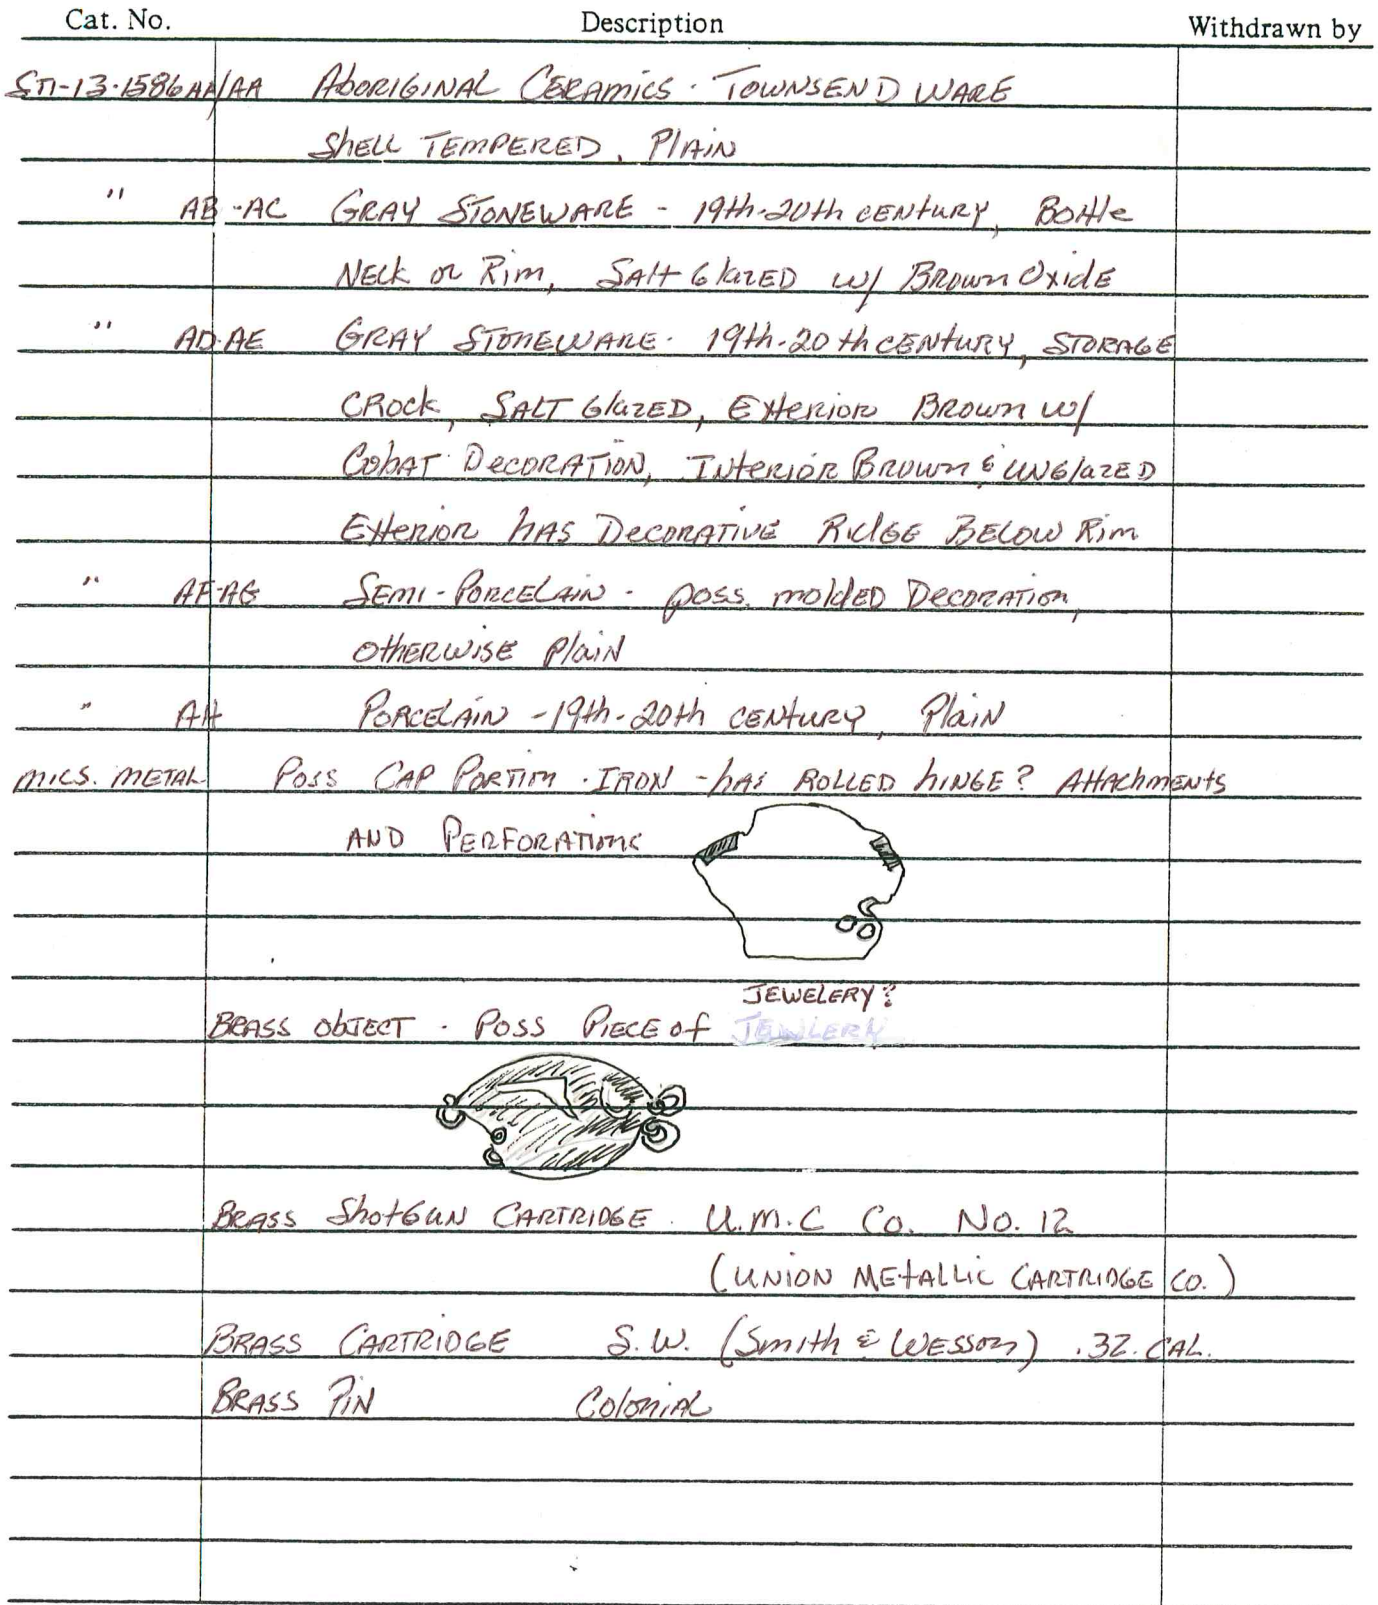 Cat. No. Description Withdrawn by
STI-13-1586AA/AA ABORIGINAL CERAMICS. TOWNSEND WARE
SHELL TEMPERED, PLAIN
" AB-AC GRAY STONEWARE - 19th-20th CENTURY, BOttle
NECK or Rim, SAlt GlazED w/ BROWN OxidE
" AD-AE GRAY STONEWARE. 19th-20th CENTURY, STORAGE
CROCK, SALT GlazED, EXterior BROWN w/
CobAT DECORATION, INterior BROWN & UNGlazED
EXterior hAS DECORATIVE RidGE BELOW Rim
" AF-AG SEMI-PORCELAIN - poss. molded DECORATION,
OthERWISE PlaiN
" AH PORCELAIN - 19th-20th CENTURY, PlaiN
MICS. METAL POSS CAP PORTION. IRON - hAS ROLLED hINGE? AttAChmENtS
AND PERFORATIONS
JEWELERY?
BRASS ObJECT. POSS PIECE of JEWLERY
BRASS ShotGUN CARTRIDGE. U.M.C Co. No. 12
(UNION METALLIC CARTRIDGE CO.)
BRASS CARTRIDGE S.W. (Smith & WESSON) .32. CAL.
BRASS PIN COlONIAL